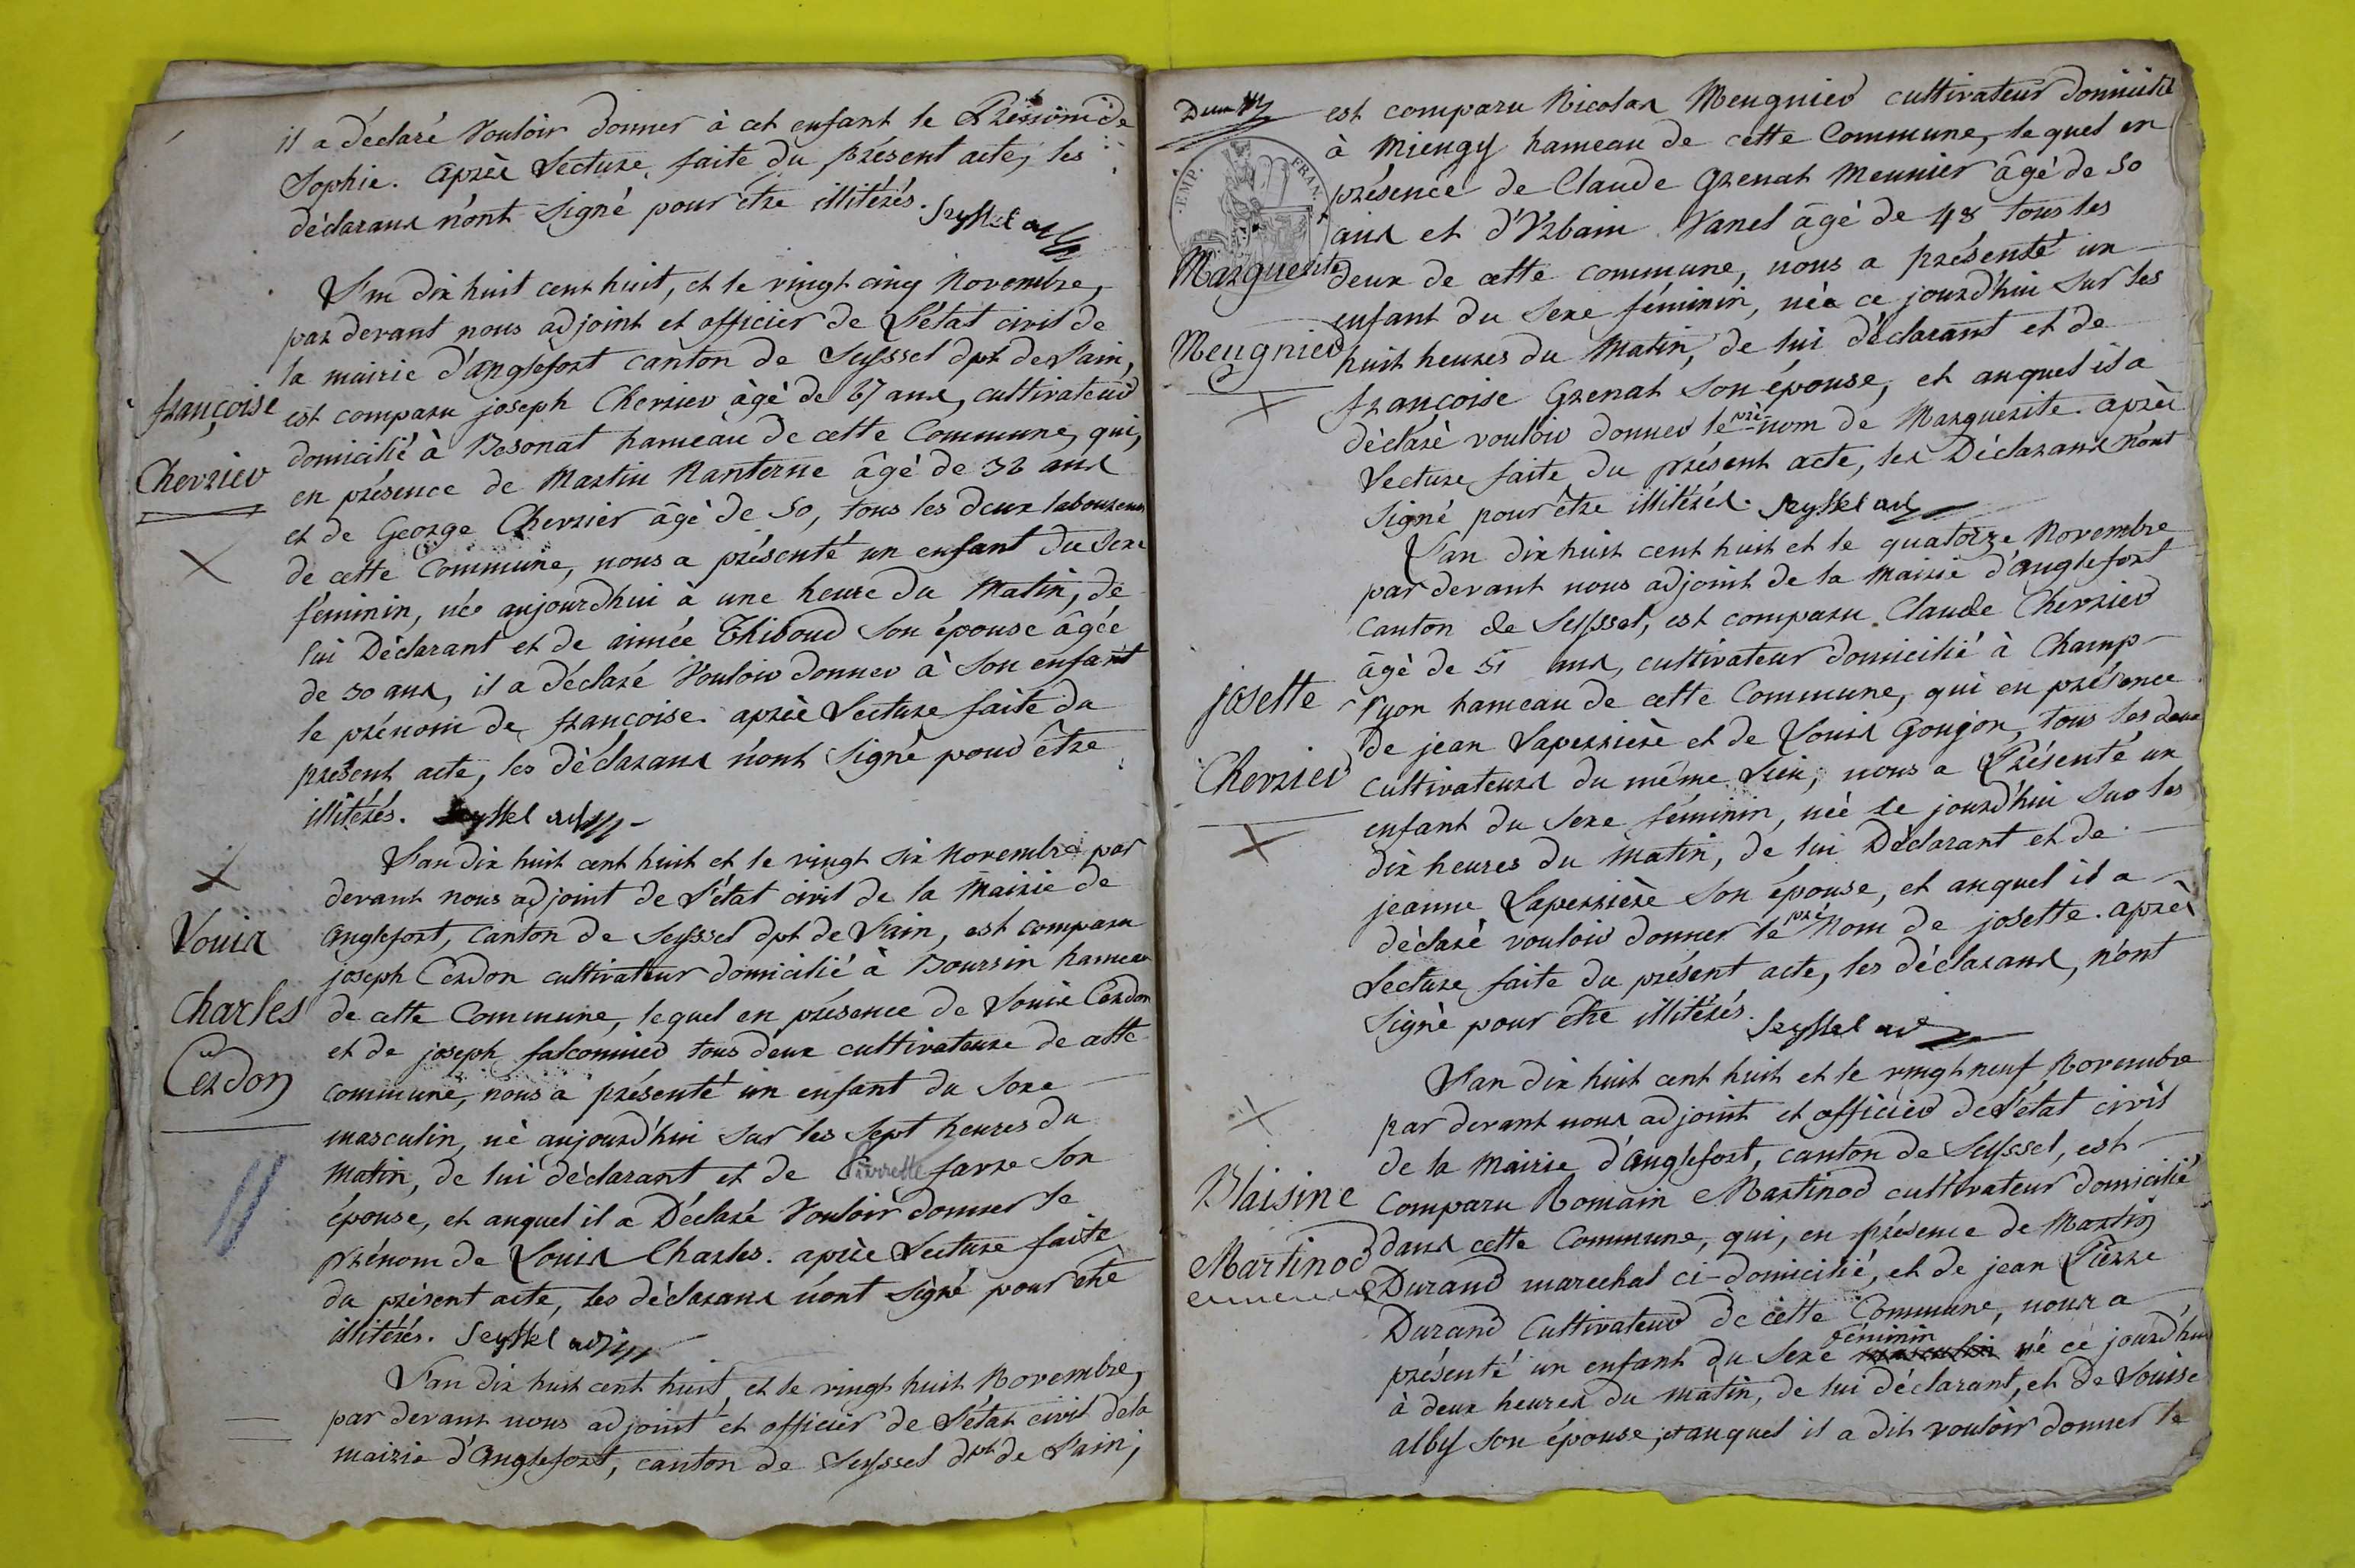 il a déclaré vouloir donner à cet enfant le Prénom de
Sophie. Après Lecture, faite du présent acte, les
déclarans n'ont signé pour être illitérés. Seyssel adj
L'an dix huit cent huit, et le vingt cinq Novembre,
par devant nous adjoint et officier de l'état civil de
la mairie d'anglefort canton de Seyssel dpt de l'ain,
françoise
est comparu joseph Cherrier âgé de 67 ans, cultivateur
domicilié à Besonat hameau de cette Commune, qui,
Cherrier
en présence de Martin Nanterne âgé de 32 ans
et de George Cherrier âgé de 50, tous les deux laboureurs
de cette Commune, nous a présenté un enfant du sexe
féminin, née aujourdhui à une heure du Matin, de
lui Déclarant et de aimée Thiboud son épouse âgée
de 30 ans, il a déclaré Vouloir donner à son enfant
le prénom de françoise. après Lecture faite du
présent acte, les déclarans n'ont signé pour être
illitérés. Seyssel adj
L'an dix huit cent huit et le vingt six Novembre par
devant nous adjoint de l'état civil de la Mairie de
Louis
anglefort, canton de Seyssel dpt de l'ain, est comparu
joseph Cerdon cultivateur domicilié à Boursin hameau
Charles
de cette Commune, lequel en présence de Louis Cerdon
et de joseph falconnier tous deux cultivateurs de cette
Cerdon
commune, nous a présenté un enfant du sexe
masculin, né aujourd'hui sur les sept heures du
Matin, de lui déclarant et de Pierrette favre son
épouse, et auquel il a Déclaré Vouloir donner le
prénom de Louis Charles. après Lecture faite
du présent acte, les déclarans n'ont signé pour être
illitérés. Seyssel adj
L'an dix huit cent huit, et le vingt huit Novembre,
par devant nous adjoint et officier de l'état civil de la
mairie d'anglefort, canton de Seyssel dpt de l'ain,
est comparu Nicolas Meugnier cultivateur domicilié
à Miengy hameau de cette Commune, lequel en
EMP. FRAN.
présence de Claude Grenat Meunier âgé de 50
ans et d'Urbain Vanel âgé de 48 tous les
Marguerite
deux de cette commune, nous a présenté un
enfant du sexe féminin, née ce jourd'hui sur les
Meugnier
huit heures du Matin, de lui déclarant et de
françoise Grenat son épouse, et auquel il a
déclaré vouloir donner le prénom de Marguerite. après
Lecture faite du présent acte, les Déclarans n'ont
signé pour être illitérés. Seyssel adj
L'an dix huit cent huit et le quatorze Novembre
par devant nous adjoint de la Mairie d'anglefort
canton de Seyssel, est comparu Claude Cherrier
âgé de 51 ans, cultivateur domicilié à Champ-
josette
ryon hameau de cette Commune, qui en présence
de jean Laperrière et de Louis Goujon, tous les deux
Cherrier
cultivateurs du même lieu, nous a Présenté un
enfant du sexe féminin, née le jourd'hui sur les
dix heures du Matin, de lui Déclarant et de
jeanne Laperrière son épouse, et auquel il a
déclaré vouloir donner le prénom de josette. après
Lecture faite du présent acte, les déclarans, n'ont
signé pour être illitérés. Seyssel adj
L'an dix huit cent huit et le vingt neuf Novembre
par devant nous adjoint et officier de l'état civil
de la Mairie d'anglefort, canton de Seyssel, est
Blaisine
comparu Romain Martinod cultivateur domicilié
dans cette Commune, qui, en présence de Martin
Martinod
Durand marechal ci-domicilié, et de jean Pierre
Durand Cultivateur de cette Commune, nous a
présenté un enfant du sexe féminin né ce jourd'hui
à deux heures du matin, de lui déclarant, et de Louise
alby son épouse, et auquel il a dit vouloir donner le